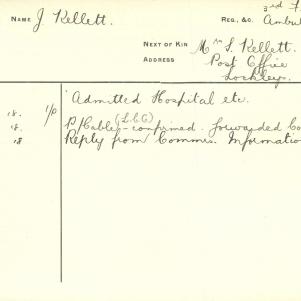 NAME J. Kellett. REG., &C. 3rd F.
Ambul
NEXT OF KIN Mrs S. Kellett.
ADDRESS Post Office
Lockley.
18. 1/0 Admitted Hospital etc.
18. P/Cable (L.C.G) - confirmed. forwarded Co
18 Reply from Commrs. Information